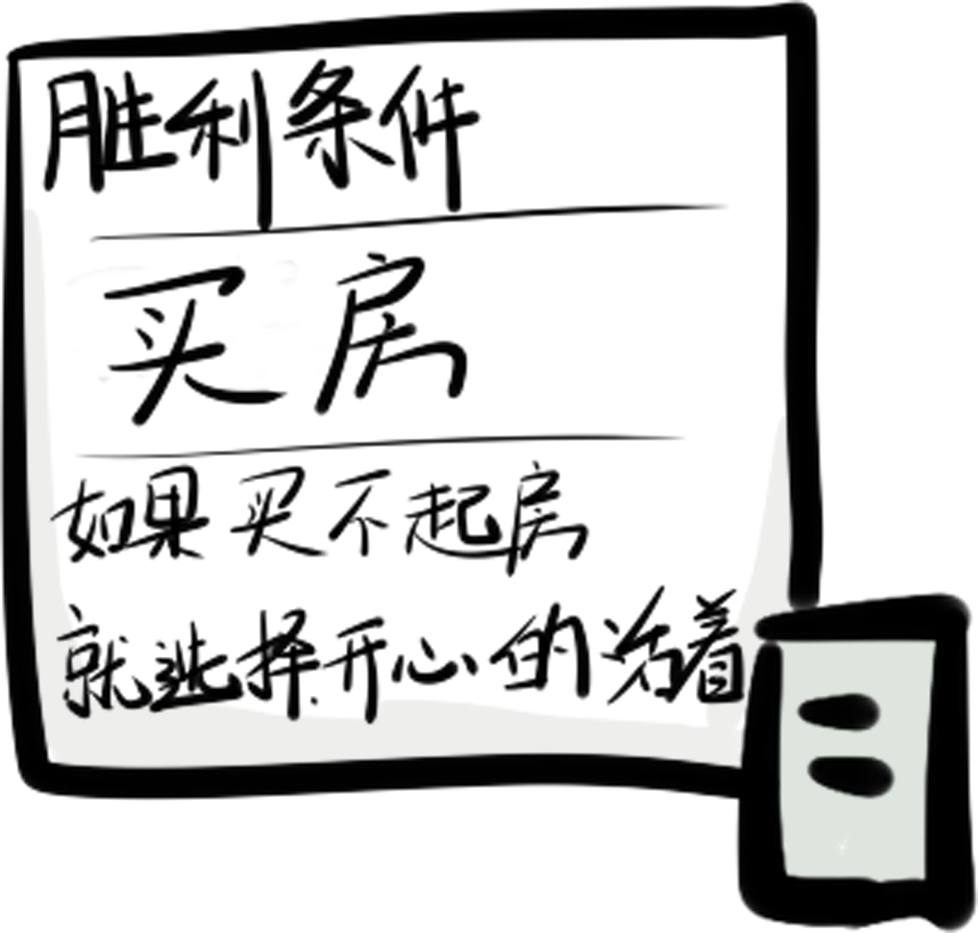 胜利条件
买房
如果买不起房
就选择开心的活着